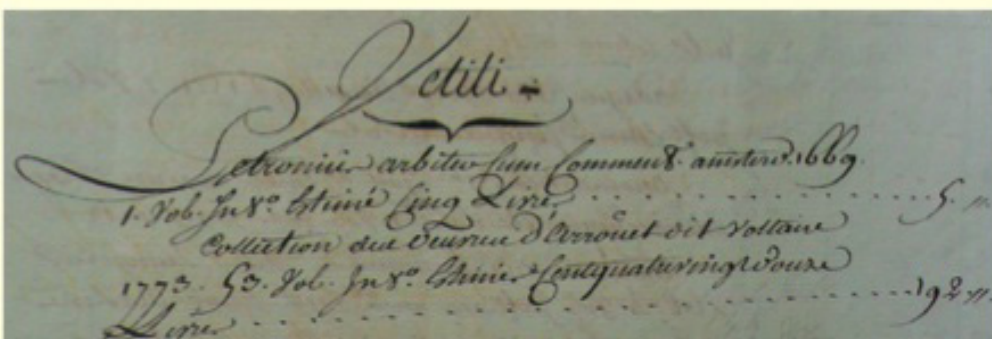 Vetiti -
Petronius arbiter Cum Comment. amsterd. 1669.
1. Vol. In 8.° Estimé Cinq Livres . . . . . . . . . . . . . . . 5. "
Collection des Oeuvres d'Arroüet dit Voltaire
1773. 53. Vol. In 8.° Estimés Cent quatrevingt Douze
Livres . . . . . . . . . . . . . . . . . . . . . . . . . . 192 "